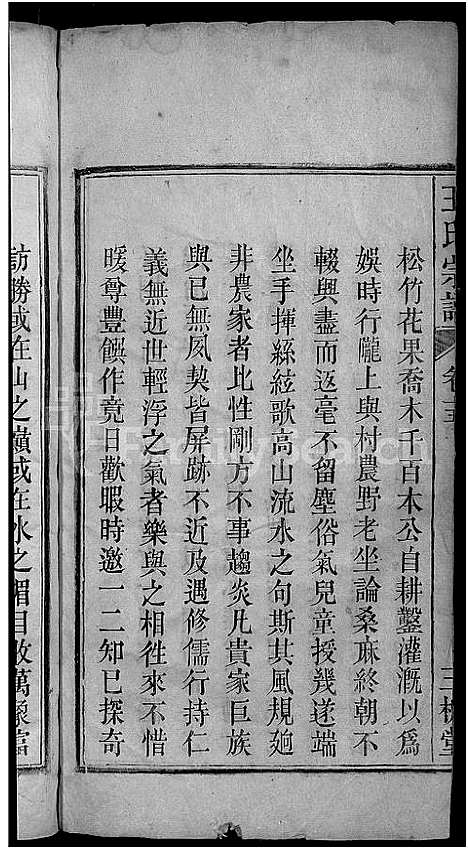 王氏宗譜
卷
三槐堂
松竹花果喬木千百本公自耕鑿灌溉以爲
娛時行隴上與村農野老坐論桑麻終朝不
輟興盡而返毫不留塵俗氣兒童授幾遂端
坐手揮絲絃歌高山流水之句斯其風規迥
非農家者比性剛方不事趨炎凡貴家巨族
與已無夙契皆屏跡不近及遇修儒行持仁
義無近世輕浮之氣者樂與之相徃來不惜
暖尊豐饌作竟日歡暇時邀一二知已探奇
訪勝或在山之巔或在水之湄目收萬象富
FamilySearch